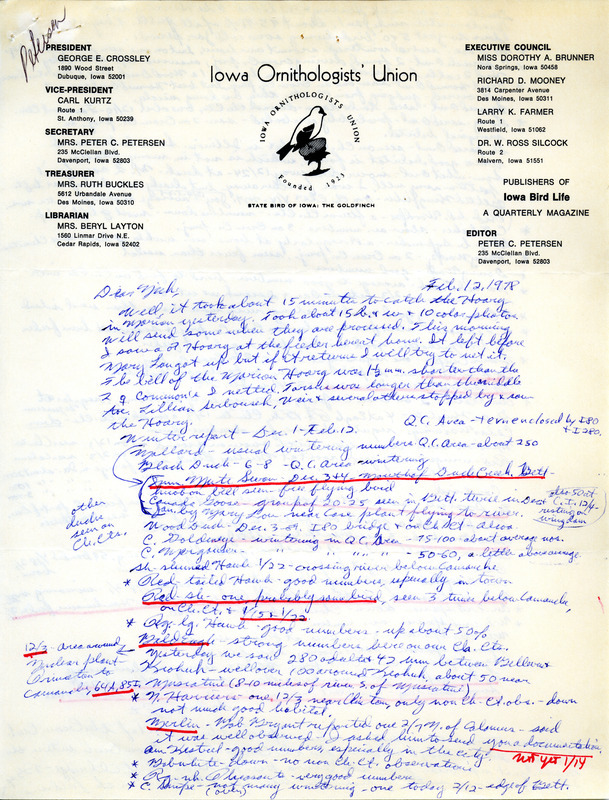 Petersen
PRESIDENT
GEORGE E. CROSSLEY
1890 Wood Street
Dubuque, Iowa 52001
VICE-PRESIDENT
CARL KURTZ
Route 1
St. Anthony, Iowa 50239
SECRETARY
MRS. PETER C. PETERSEN
235 McClellan Blvd.
Davenport, Iowa 52803
TREASURER
MRS. RUTH BUCKLES
5612 Urbandale Avenue
Des Moines, Iowa 50310
LIBRARIAN
MRS. BERYL LAYTON
1560 Linmar Drive N.E.
Cedar Rapids, Iowa 52402
Iowa Ornithologists' Union
IOWA ORNITHOLOGISTS UNION
Founded 1923
STATE BIRD OF IOWA: THE GOLDFINCH
EXECUTIVE COUNCIL
MISS DOROTHY A. BRUNNER
Nora Springs, Iowa 50458
RICHARD D. MOONEY
3814 Carpenter Avenue
Des Moines, Iowa 50311
LARRY K. FARMER
Route 1
Westfield, Iowa 51062
DR. W. ROSS SILCOCK
Route 2
Malvern, Iowa 51551
PUBLISHERS OF
Iowa Bird Life
A QUARTERLY MAGAZINE
EDITOR
PETER C. PETERSEN
235 McClellan Blvd.
Davenport, Iowa 52803
Feb. 12, 1978
Dear Nick,
Well, it took about 15 minutes to catch the Hoary
in Marion yesterday. Took about 15 b & w & 10 color photos
Will send some when they are processed. This morning
I saw a Hoary at the feeder here at home. It left before
Mary Lou got up but if it returns I will try to net it.
The bill of the Marion Hoary was 1½ mm. shorter than the
2 Common's I netted. Tarsus was longer than the middle
toe. Lillian Serbousek, Weir & several others stopped by & saw
the Hoary.
Q.C. Area - term enclosed by I80
& I280.
Winter report - Dec. 1 - Feb. 12.
Mallard - usual wintering numbers Q.C. Area - about 250
Black Duck - 6-8 - Q.C. Area - wintering
Mute Swan Dec. 3 & 4 - Mouth of Duck Creek, Bett.
free flying bird
Canada Goose - group of 20-25 seen in Bett. twice in Dec &
Jan. by Mary Lou near Case plant flying to river.
also 50 at
C.I. 12/4
resting on
wing dam
other
ducks
seen on
Ch. Cts.
Wood Duck - Dec. 3 - I80 bridge & on Ch. Ct. - also
C. Goldeneye - wintering in Q.C. Area - 75-100 - about average nos.
C. Merganser - " " " " - 50-60, a little above average.
Sh. shinned Hawk 1/22 - crossing river below Camanche
* Red-tailed Hawk - good numbers, especially in town
Red-sh. - one, probably same bird, seen 3 times below Camanche,
on Ch. Ct. & 1/15 & 1/22
* Rg. lg. Hawk - good numbers - up about 50%
Bald Eagle - strong numbers here on our Ch. Cts.
Yesterday we saw 280 adults & 42 imm between Bellevue &
Keokuk - well over 100 around Keokuk, about 50 near
Muscatine (8-10 miles of river S. of Muscatine)
12/3 - area around
Nuclear plant -
Princeton to
Camanche, 64A, 85I
* N. Harrier - one 12/3 near Clinton, only non Ch. Ct. obs. - down
not much good habitat.
Merlin - Bob Bryant reported one 2/7 N. of Calamus - said
it was well observed - I asked him to send you a documentation
not yet 1/14
Am Kestrel - good numbers, especially in the city.
* Bobwhite - down - no non Ch. Ct. observations
* Rg-nk. Pheasant - very good numbers
* C. Snipe - not many wintering - one today 2/12 - edge of Bett.
(over)